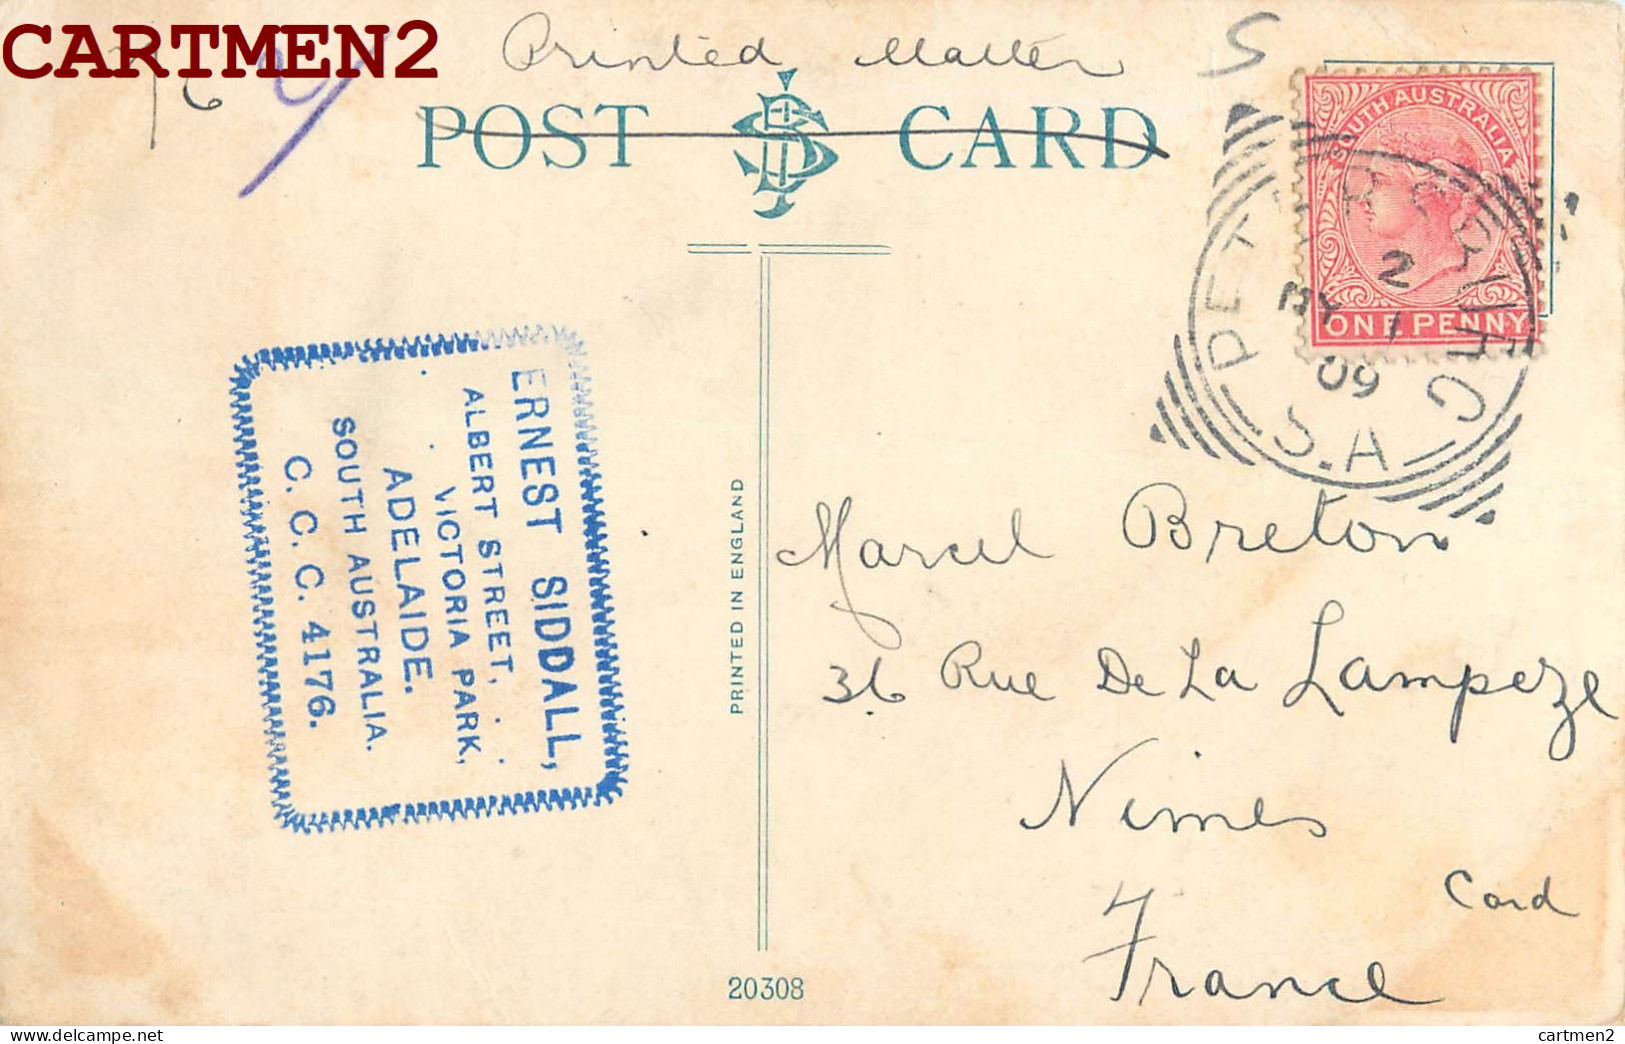 CARTMEN2
Printed Matter
POST CARD
SOUTH AUSTRALIA
ONE PENNY
PETERSBURG
2
MY 1
09
S.A
ERNEST SIDDALL,
ALBERT STREET,
VICTORIA PARK,
ADELAIDE.
SOUTH AUSTRALIA.
C. C. C. 4176.
PRINTED IN ENGLAND
Marcel Breton
36 Rue De La Lampeze
Nimes
Card
France
20308
cartmen2